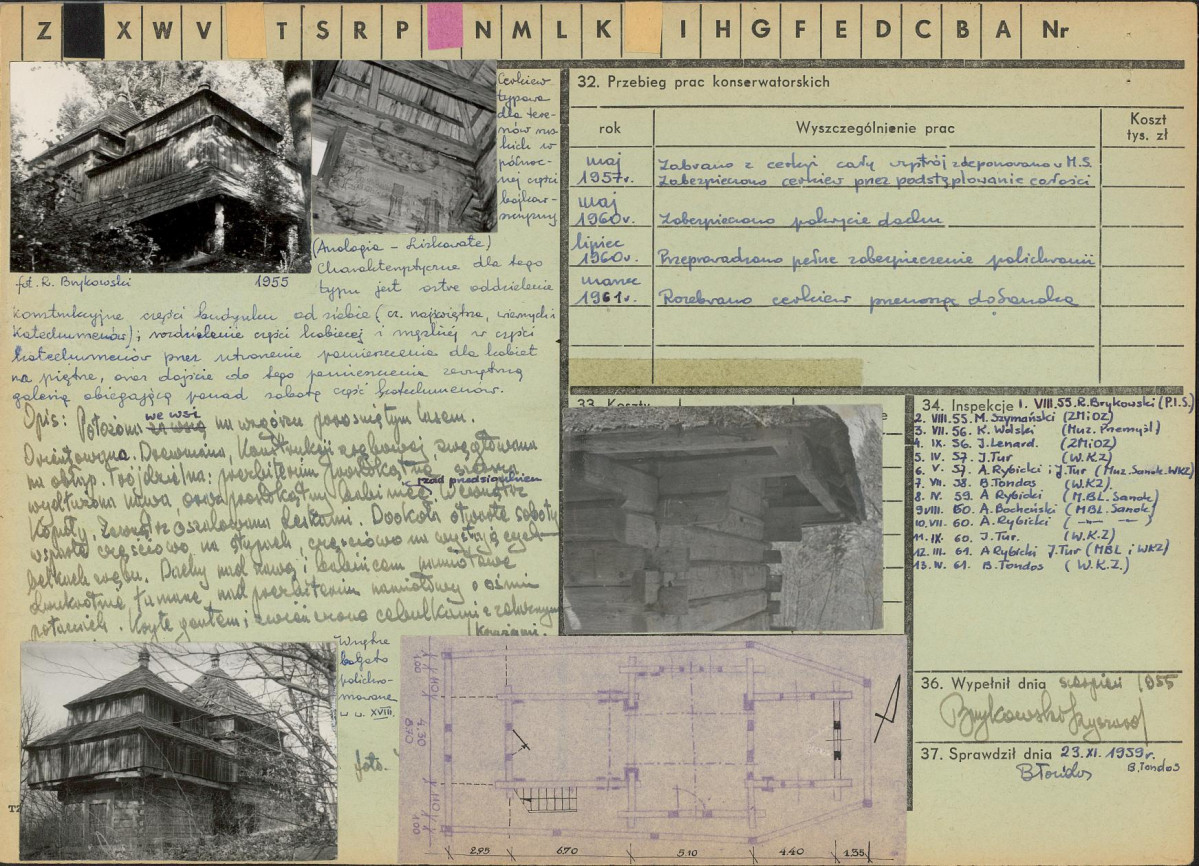 Z X W V T S R P N M L K I H G F E D C B A Nr
Cerkiew
typowa
dla tere-
nów rus-
kich w
północ-
nej części
bojkow-
szczyzny
(Analogia – Liskowate)
Charakterystyczne dla tego
typu jest ostre oddzielenie
fot. R. Brykowski 1955
konstrukcyjne części budynku od siebie (cz. najświętsza, wiernych i
Katechumenów); rozdzielenie części kobiecej i męskiej w części
katechumenów przez utworzenie pomieszczenia dla kobiet
na piętrze, oraz dojście do tego pomieszczenia zewnętrzną
galerią obiegającą ponad sobotą część katechumenów.
Opis: Położona we wsi na wzgórzu porośniętym lasem.
Orientowana. Drewniana, Konstrukcji zrębowej zwęgłowana
na obłap. Trójdzielna: prezbiterium prostokątne, szersza
wydłużona nawa, oraz prostokątny babiniec. Wewnątrz
nad przedsionkiem
Kopuły. Zewnątrz oszalowana deskami. Dookoła otwarte soboty
wsparte częściowo na słupach, częściowo na wystających
belkach zrębu. Dachy nad nawą i babińcem namiotowe
dwukrotnie łamane, nad prezbiterium namiotowy o ośmiu
połaciach. Kryte gontem i zwieńczone cebulkami z żelaznymi
Krzyżami.
Wnętrze
bogato
polichro-
mowane
w w. XVIII.
foto.
32. Przebieg prac konserwatorskich
rok Wyszczególnienie prac Koszt tys. zł
maj 1957r. Zabrano z cerkwi cały wystrój zdeponowano w M.S.
Zabezpieczono cerkiew przez podstęplowanie całości
maj 1960r. Zabezpieczono pokrycie dachu
lipiec 1960r. Przeprowadzono pełne zabezpieczenie polichromii
marzec 1961r. Rozebrano cerkiew przenosząc do Sanoka
33. Koszty
34. Inspekcje 1. VIII.55. R. Brykowski (P.I.S.)
2. VIII.55. M. Szymański (ZMiOZ)
3. VII. 56. K. Wolski (Muz. Przemyśl)
4. IX. 56. J. Lenard. (ZMiOZ)
5. IV. 57. J. Tur (W.K.Z)
6. V. 57. A. Rybicki i J. Tur (Muz. Sanok. WKZ)
7. VII. 58. B. Tondos (W.K.Z).
8. IV. 59. A Rybicki (M.BL. Sanok)
9 VIII. 60. A. Bocheński (MBL. Sanok)
10. VII. 60. A. Rybicki ( —"— — )
11. IX. 60. J. Tur. (W.K.Z)
12. III. 61. A Rybicki J. Tur (MBL i WKZ)
13. IV. 61. B. Tondos (W.K.Z.)
36. Wypełnił dnia sierpień 1955
Brykowski Ryszard
37. Sprawdził dnia 23. XI. 1959 r.
BTondos B. Tondos
1.00
4.30
8.70
1.00
2.95 6.70 5.10 4.40 1.35